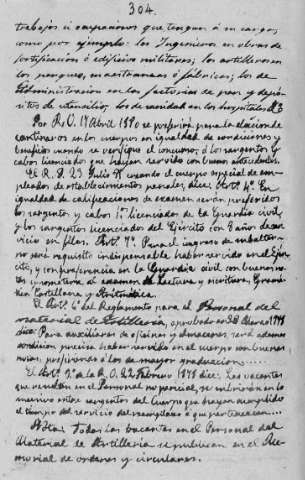 304.
trabajos ú ocupaciones que tengan á su cargo,
como por ejemplo: los Ingenieros en obras de
fortificación ó edificios militares; los artilleros en
los parques, maestranzas ó fábricas; los de
Administración en las factorías de pan y depó-
sitos de utensilio; los de sanidad en los hospitales &
Por R. O. 17 Abril 1890 se para la elección de
cantineros en los cuerpos en igualdad de condiciones y
beneficios cuando se verifique el concurso, á los sargentos y
cabos licenciados que hayan servido con buenos antecedentes.
El R. D. 23 Julio creando el cuerpo especial de em-
pleados de establecimientos penales, dice: Artº 4º En
igualdad de calificaciones de examen serán preferidos
los sargentos y cabos 1os licenciados de la Guardia civil,
y los sargentos licenciados del Ejército con 8 años de ser-
vicio en filas. Artº 7º Para el ingreso de
no será requisito indispensable haber servido en el Ejér-
cito, y con preferencia en la Guardia civil con buenas no-
tas y al examen de Lectura y escritura, Gramá-
tica Castellana y Aritmética.
El Artº 4º del Reglamento para el Personal del
material de Artillería, aprobado en 28 1878
dice: Para auxiliares de oficinas y almacenes será además
condición precisa haber servido en el cuerpo con buenas
notas, prefiriendo á los de mayor graduación......
El Artº 2º de la R. O. 22 Febrero 1879 dice: Las vacantes
que resulten en el Personal no pericial, se cubrirán en lo
sucesivo entre sargentos del cuerpo que hayan cumplido
el tiempo del servicio del reemplazo á que pertenezcan.....
Nota: Todas las vacantes en el Personal del
Material de Artillería se publican en el Me-
morial de órdenes y circulares.